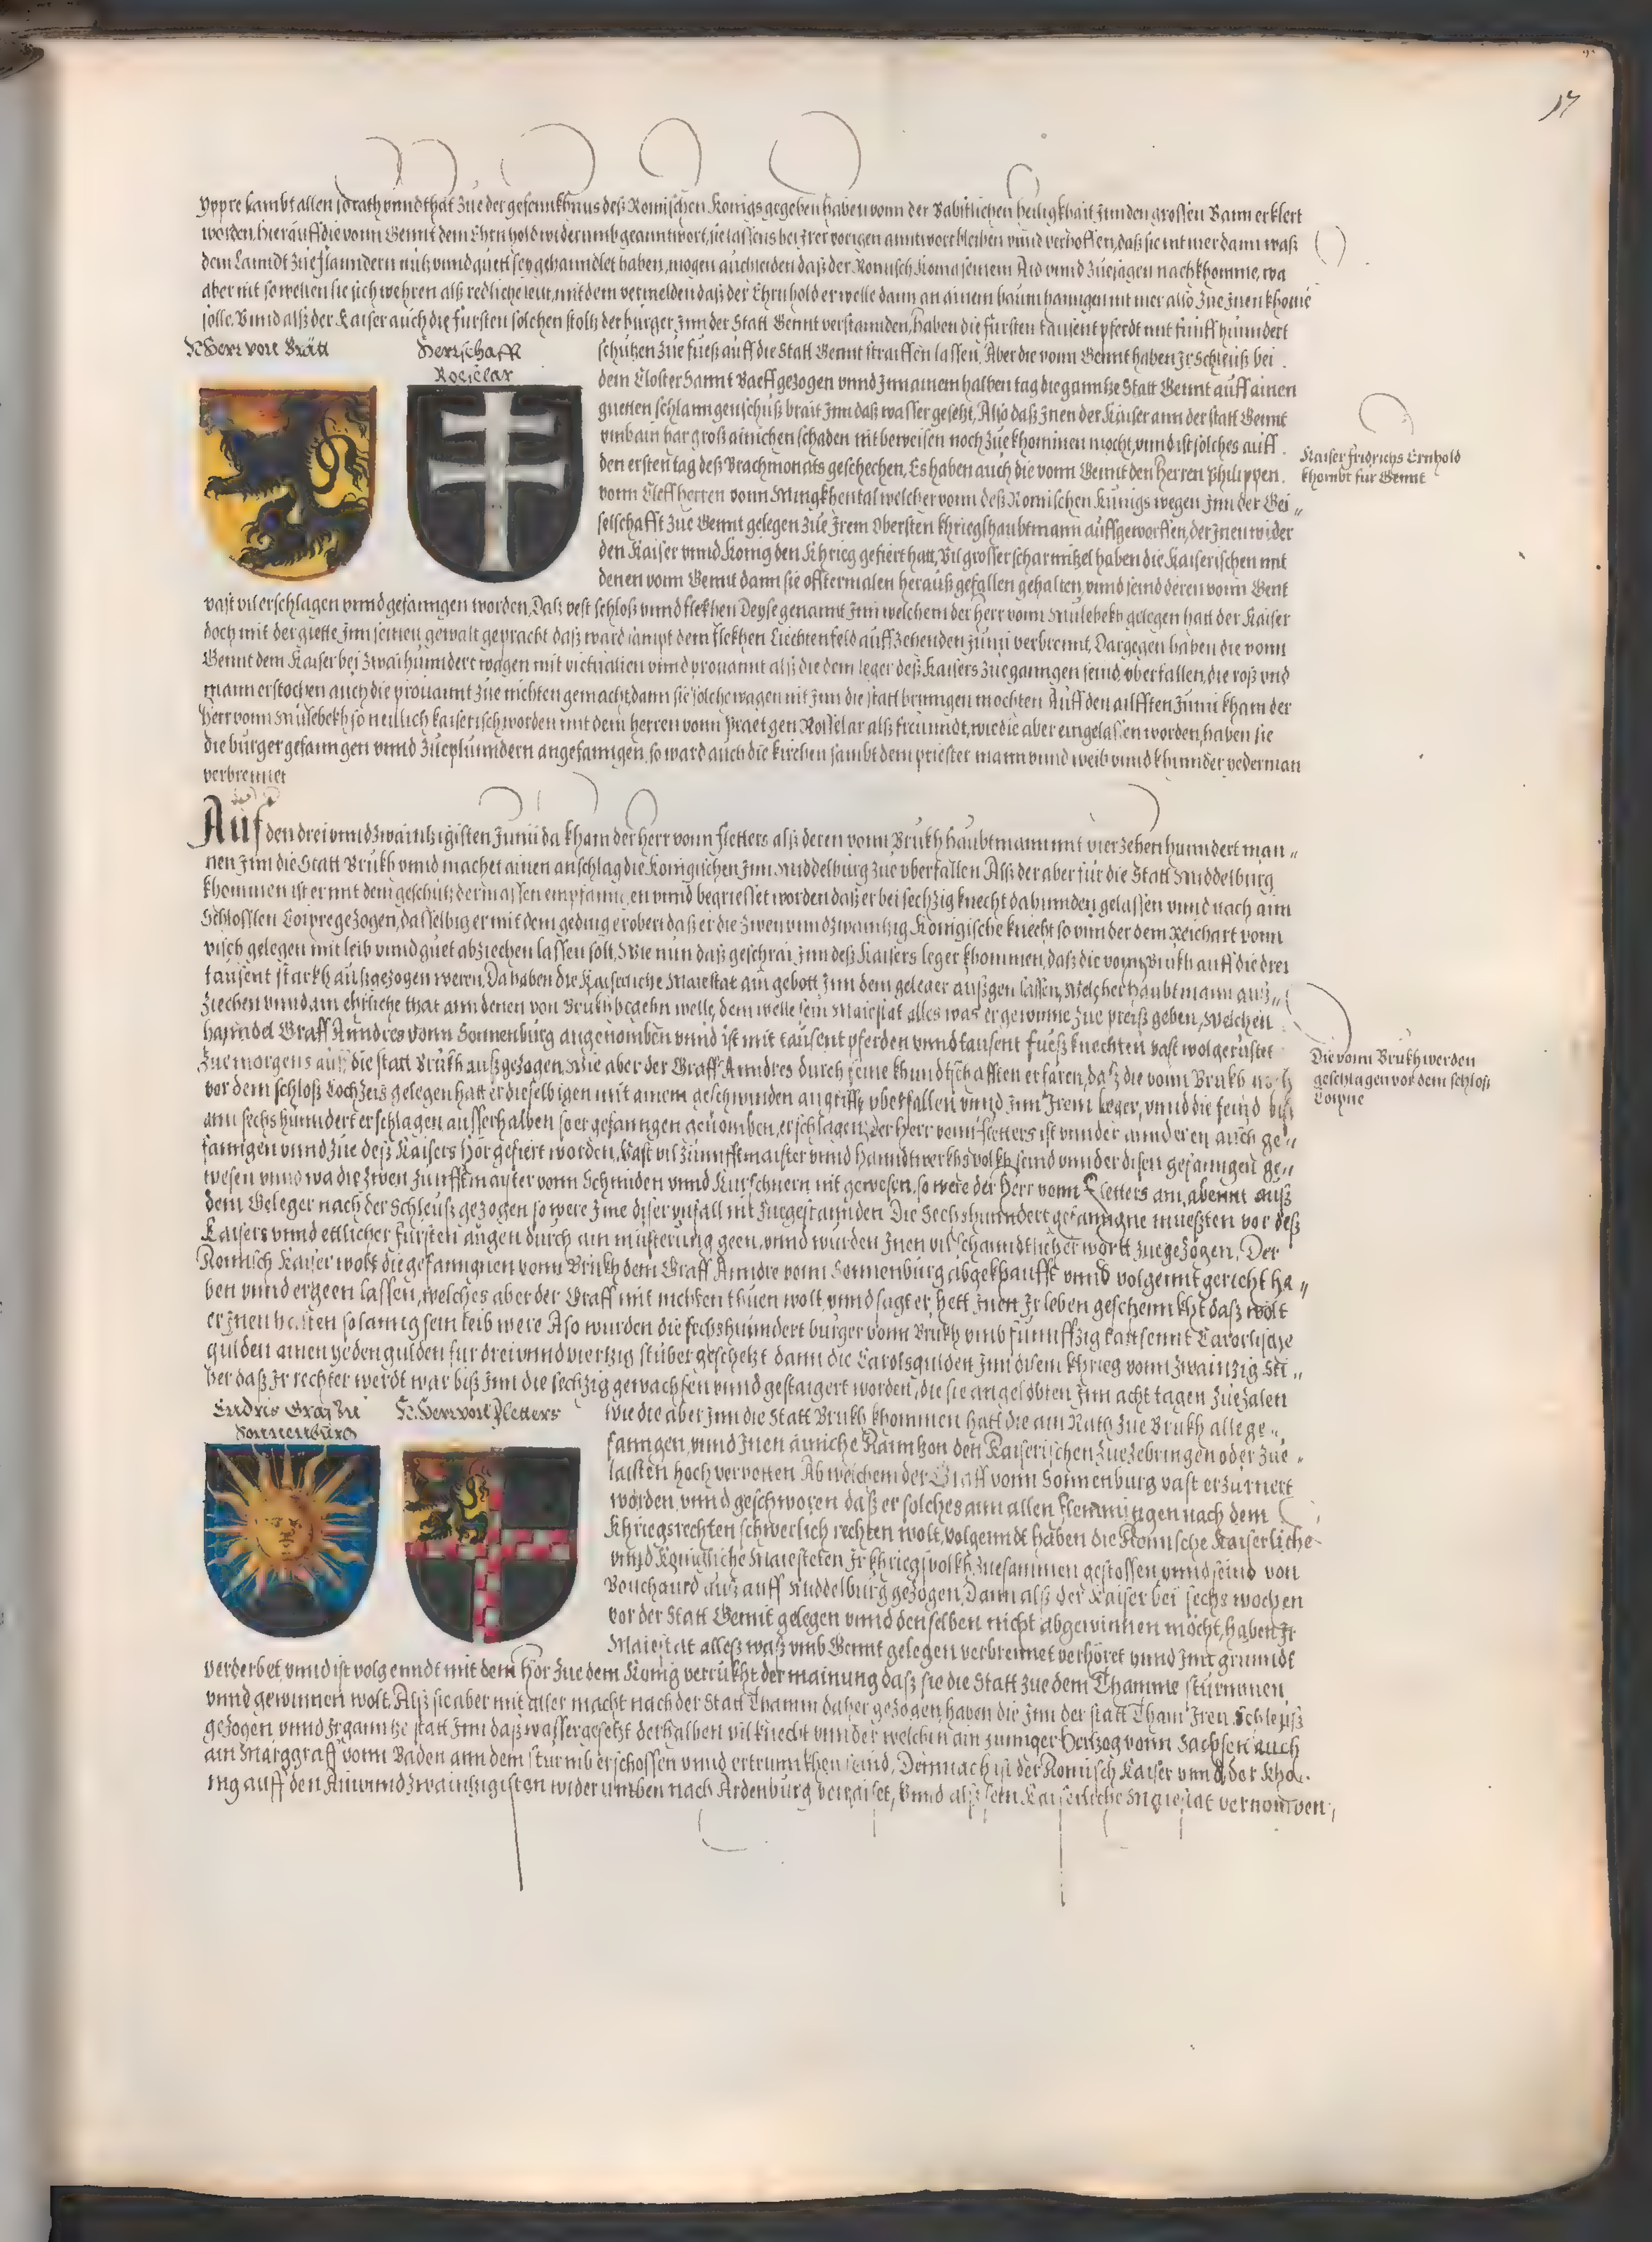 17
yppre sambt allen so rath vnnd that zue der gefennkhnus deß Romischen Konigs gegeben haben vonn der Babstlichen heiligkhait Jnn den grossen Bann erklert
worden, hierauff die vonn Gennt dem Ehrnhold widerumb geanntwort, sie lassens bei Jrer vorigen anntwort bleiben vnnd verhoffen, daß sie nit mer dann waß
dem Lanndt zue Flanndern nutz vnnd guett sey gehanndlet haben, mogen auch leiden daß der Romisch Konig seinem Aid vnnd zuesagen nachkhomme, wa
aber nit so wellen sie sich wehren alß redliche leut, mit dem vermelden daß der Ehrnhold er welle dann an ainem baum hanngen nit mer also zue Jnen khome
solle. Vnnd alß der Kaiser auch die fursten solchen stoltz der burger Jnn der Statt Gennt verstannden, haben die fursten tausent pferdt mit funff hunndert
H Herr von Prätt
Herrschafft
Rosselar
schutzen zue fueß auff die Statt Gennt straiffen lassen, Aber die vonn Gennt haben Jr Schleuß bei
dem Closter Sannt Baeff gezogen vnnd Jnn ainem halben tag die ganntze Statt Gennt auff ainen
guetten schlanngenschuß brait Jnn daß wasser gesetzt, Also daß Jnen der Kaiser ann der statt Gennt
vmb ain har groß ainichen schaden nit beweisen noch zuekhommen mocht, vnnd ist solches auff
den ersten tag deß Brachmonats geschechen, Es haben auch die vonn Gennt den Herren Philippen
vonn Cleff herren vonn Wingkhental welcher vonn deß Romischen Kunigs wegen Jnn der Gei„
selschafft zue Gennt gelegen zue Jrem Obersten khriegshaubtmann auffgeworffen, der Jnen wider
den Kaiser vnnd Konig den Khrieg gefiert hatt, Vil grosser scharmitzel haben die Kaiserischen mit
denen vonn Gennt dann sie offtermalen herauß gefallen gehalten, vnnd seind deren vonn Gent
vast vil erschlagen vnnd gefanngen worden, Daß vest schloß vnnd flekhen Deyse genannt Jnn welchem der Herr vonn Mulebekh gelegen hatt der Kaiser
doch mit der guette Jnn seinen gewalt gepracht daß ward sampt dem Flekhen Liechtenfeld auff zehenden Junii verbrennt, Dargegen haben die vonn
Gennt dem Kaiser bei zwaihunndert wagen mit victualien vnnd prouannt alß die dem leger deß Kaisers zueganngen seind vberfallen, die roß vnd
mann erstochen auch die prouannt zue nichten gemacht, dann sie solche wagen nit Jnn die statt bringen mochten Auff den ailfften Junii kham der
Herr vonn Mulebekh so neulich kaiserisch worden mit dem herren vonn Praet gen Rosselar alß freunndt, wie die aber eingelassen worden, haben sie
die burger gefanngen vnnd zueplunndern angefanngen, so ward auch die kirchen sambt dem priester mann vnnd weib vnnd khinnder yederman
verbrennet
Auf den drei vnnd zwaintzigisten Junii da kham der Herr vonn Fletters alß deren vonn Brukh haubtmann mit vierzehen hunndert man„
nen Jnn die Statt Brukh vnnd machet ainen anschlag die Konigischen Jnn Middelburg zue vberfallen Alß der aber fur die Statt Middelburg
khommen ist er mit dem geschutz dermassen empfanngen vnnd begriesset worden daß er bei sechzig knecht dahinnden gelassen vnnd nach aim
Schlosslen Coipre gezogen, dasselbig er mit dem geding erobert daß er die zwen vnnd zwaintzig Konigische knecht so vnnder dem Reichart vonn
visch gelegen mit leib vnnd guet abziechen lassen solt, Wie nun daß geschrai Jnn deß Kaisers leger khommen, daß die vonn Brukh auff die drei
tausent starkh außgezogen weren, Da haben die Kaiserliche Maiestat ain gebott Jnn dem geleger außgen lassen, welcher haubtmann auß„
ziechen vnnd ain ehrliche that ann denen von Brukh begehn welle, dem welle sein Maiestat alles was er gewinne zue preiß geben, welchen
hanndel Graff Anndres vonn Sonnenburg angenomben vnnd ist mit tausent pferden vnnd tausent fueß knechten vast wolgerustet
zue morgens auff die statt Brukh außgezogen, Wie aber der Graff Anndres durch seine khundtschafften erfaren, daß die vonn Brukh noch
vor dem schloß Cochzeis gelegen hatt er dieselbigen mit ainem geschwinden angriff vberfallen vnnd Jnn Jrem Leger, vnnd die feind biß
ann sechs hunndert erschlagen ausserhalben so er gefanngen genomben, erschlagen, der Herr vonn Fletters ist vnnder annderen auch ge„
fanngen vnnd zue deß Kaisers Hör gefiert worden, Vast vil Zunfftmaister vnnd Hanndtwerkhs volkh seind vnnder disen gefanngen ge„
wesen vnnd wa die zwen zunfftmaister vonn Schmiden vnnd Kurschnern nit gewesen, so were der Herr vonn Fletters am abennt auß
dem Geleger nach der Schleuß gezogen so were Jme diser vnfall nit zuegestannden Die Sechshunndert gefanngne muesten vor deß
Kaisers vnnd ettlicher fursten augen durch ain musterung geen, vnnd wurden Jnen vil schanndtlicher wortt zuegezogen, Der
Romisch Kaiser wolt die gefanngnen vonn Brukh dem Graff Anndre vonn Sonnenburg abgekhaufft vnnd volgennt gericht ha„
ben vnnd ergeen lassen, welches aber der Graff mit nichten thuen wolt, vnnd sagt er hett Jnen Jr leben geschennkht daß wolt
er Jnen halten so lanng sein leib were Also wurden die sechshunndert burger vonn Brukh vmb funnffzig tausennt Carolische
gulden ainen yeden gulden fur drei vnnd viertzig stuber geschetzt dann die Carolsgulden Jnn disem khrieg vonn zwainzig Sti„
ber daß Jr rechter werdt war biß Jnn die sechzig gewachsen vnnd gestaigert worden, die sie angelobten Jnn acht tagen zuezalen
Endris Graf zu
Sonnenburg
H. Herr von Fletters
wie die aber Jnn die Statt Brukh khommen hatt die ain Rath zue Brukh alle ge„
fanngen, vnnd Jnen ainiche Ranntzon den Kaiserischen zuezebringen oder zue
laisten hoch verpotten Ab welchem der Graff vonn Sonnenburg vast erzurnert
worden, vnnd geschworen daß er solches ann allen Flemmingen nach dem
Khriegsrechten schwerlich rechten wolt, volgenndt haben die Romische Kaiserliche
vnnd Konigliche Maiesteten Jr khriegsvolkh zuesammen gestossen vnnd seind von
Bouchaurd auß auff Middelburg gezogen, Dann alß der Kaiser bei sechs wochen
vor der Statt Gennt gelegen vnnd denselben nicht abgewinnen mocht, haben Jr
Maiestat alles waß vmb Gennt gelegen verbrennet verhöret vnnd Jnn grunndt
verderbet vnnd ist volgenndt mit dem Hör zue dem Konig verrukht der mainung daß sie die Statt zue dem Thamme sturmmen
vnnd gewinnen wolt. Alß sie aber mit aller macht nach der Statt Thamm daher gezogen, haben die Jnn der statt Tham Jren Schleuß
gezogen vnnd Jr ganntze statt Jnn daß wasser gesetzt derhalben vil knecht vnnder welchen ain junnger Hertzog vonn Sachsen auch
ain Marggraff vonn Baden ann dem sturmb erschossen vnnd ertrunnkhen seind, Demnach ist der Romisch Kaiser vnnd der Kho„
nig auff den Ain vnnd zwaintzigisten widerumben nach Ardenburg verraiset, Vnnd alß sein Kaiserliche Maiestat vernomben,
Kaiser fridrichs Ernhold
khombt fur Gennt
Die vonn Brukh werden
geschlagen vor dem schloß
Coipne